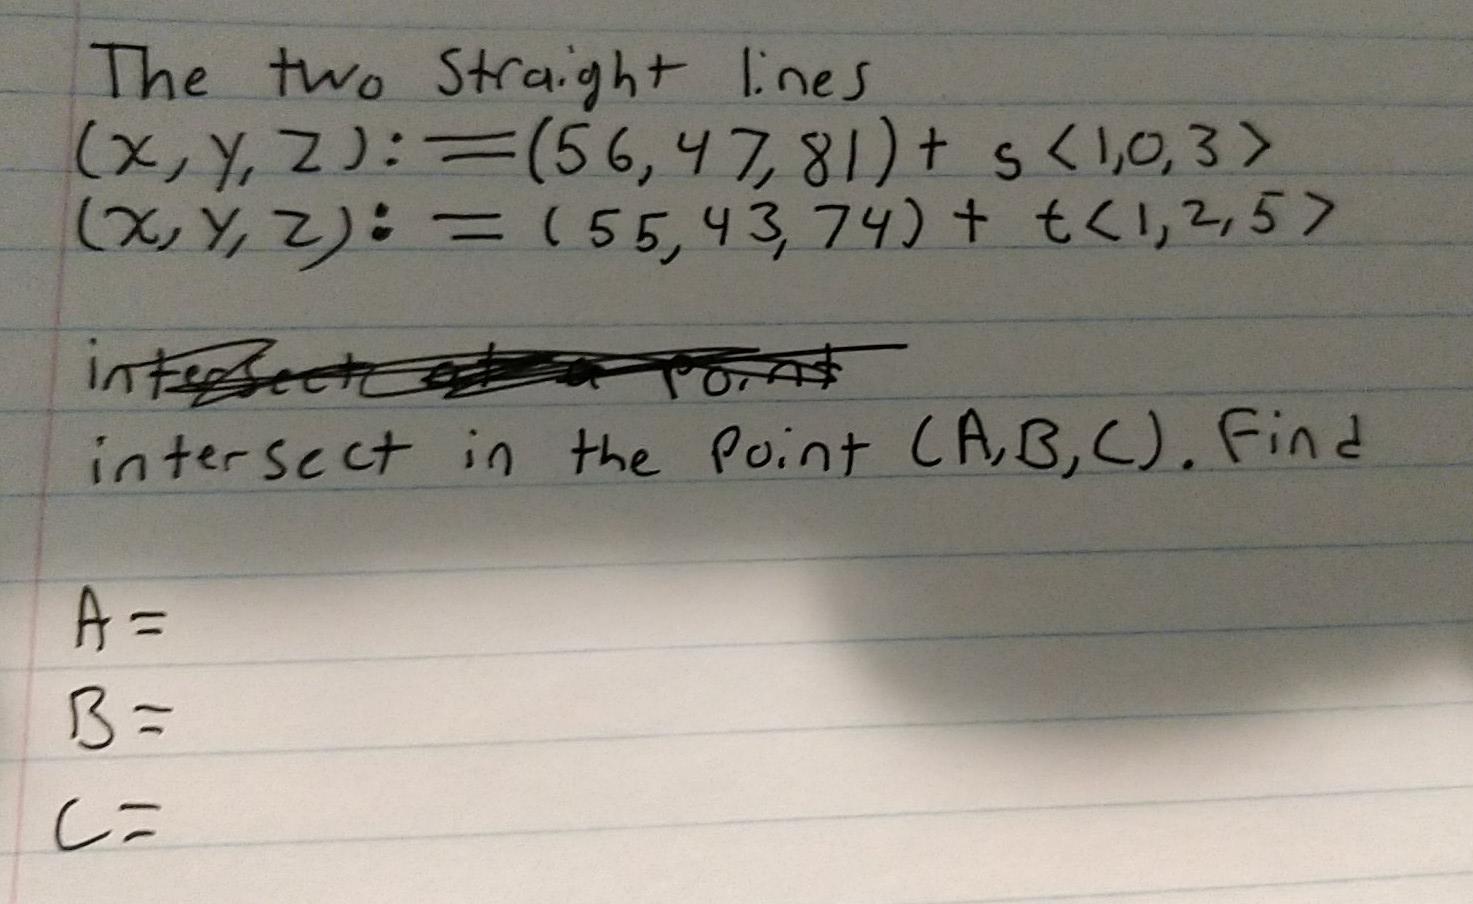 The two straight lines
(x, y, z) := (56, 47, 81) + s <1,0,3>
(x, y, z) := (55, 43, 74) + t <1, 2, 5>
intersect at a point
intersect in the point (A, B, C). Find
A =
B =
C =